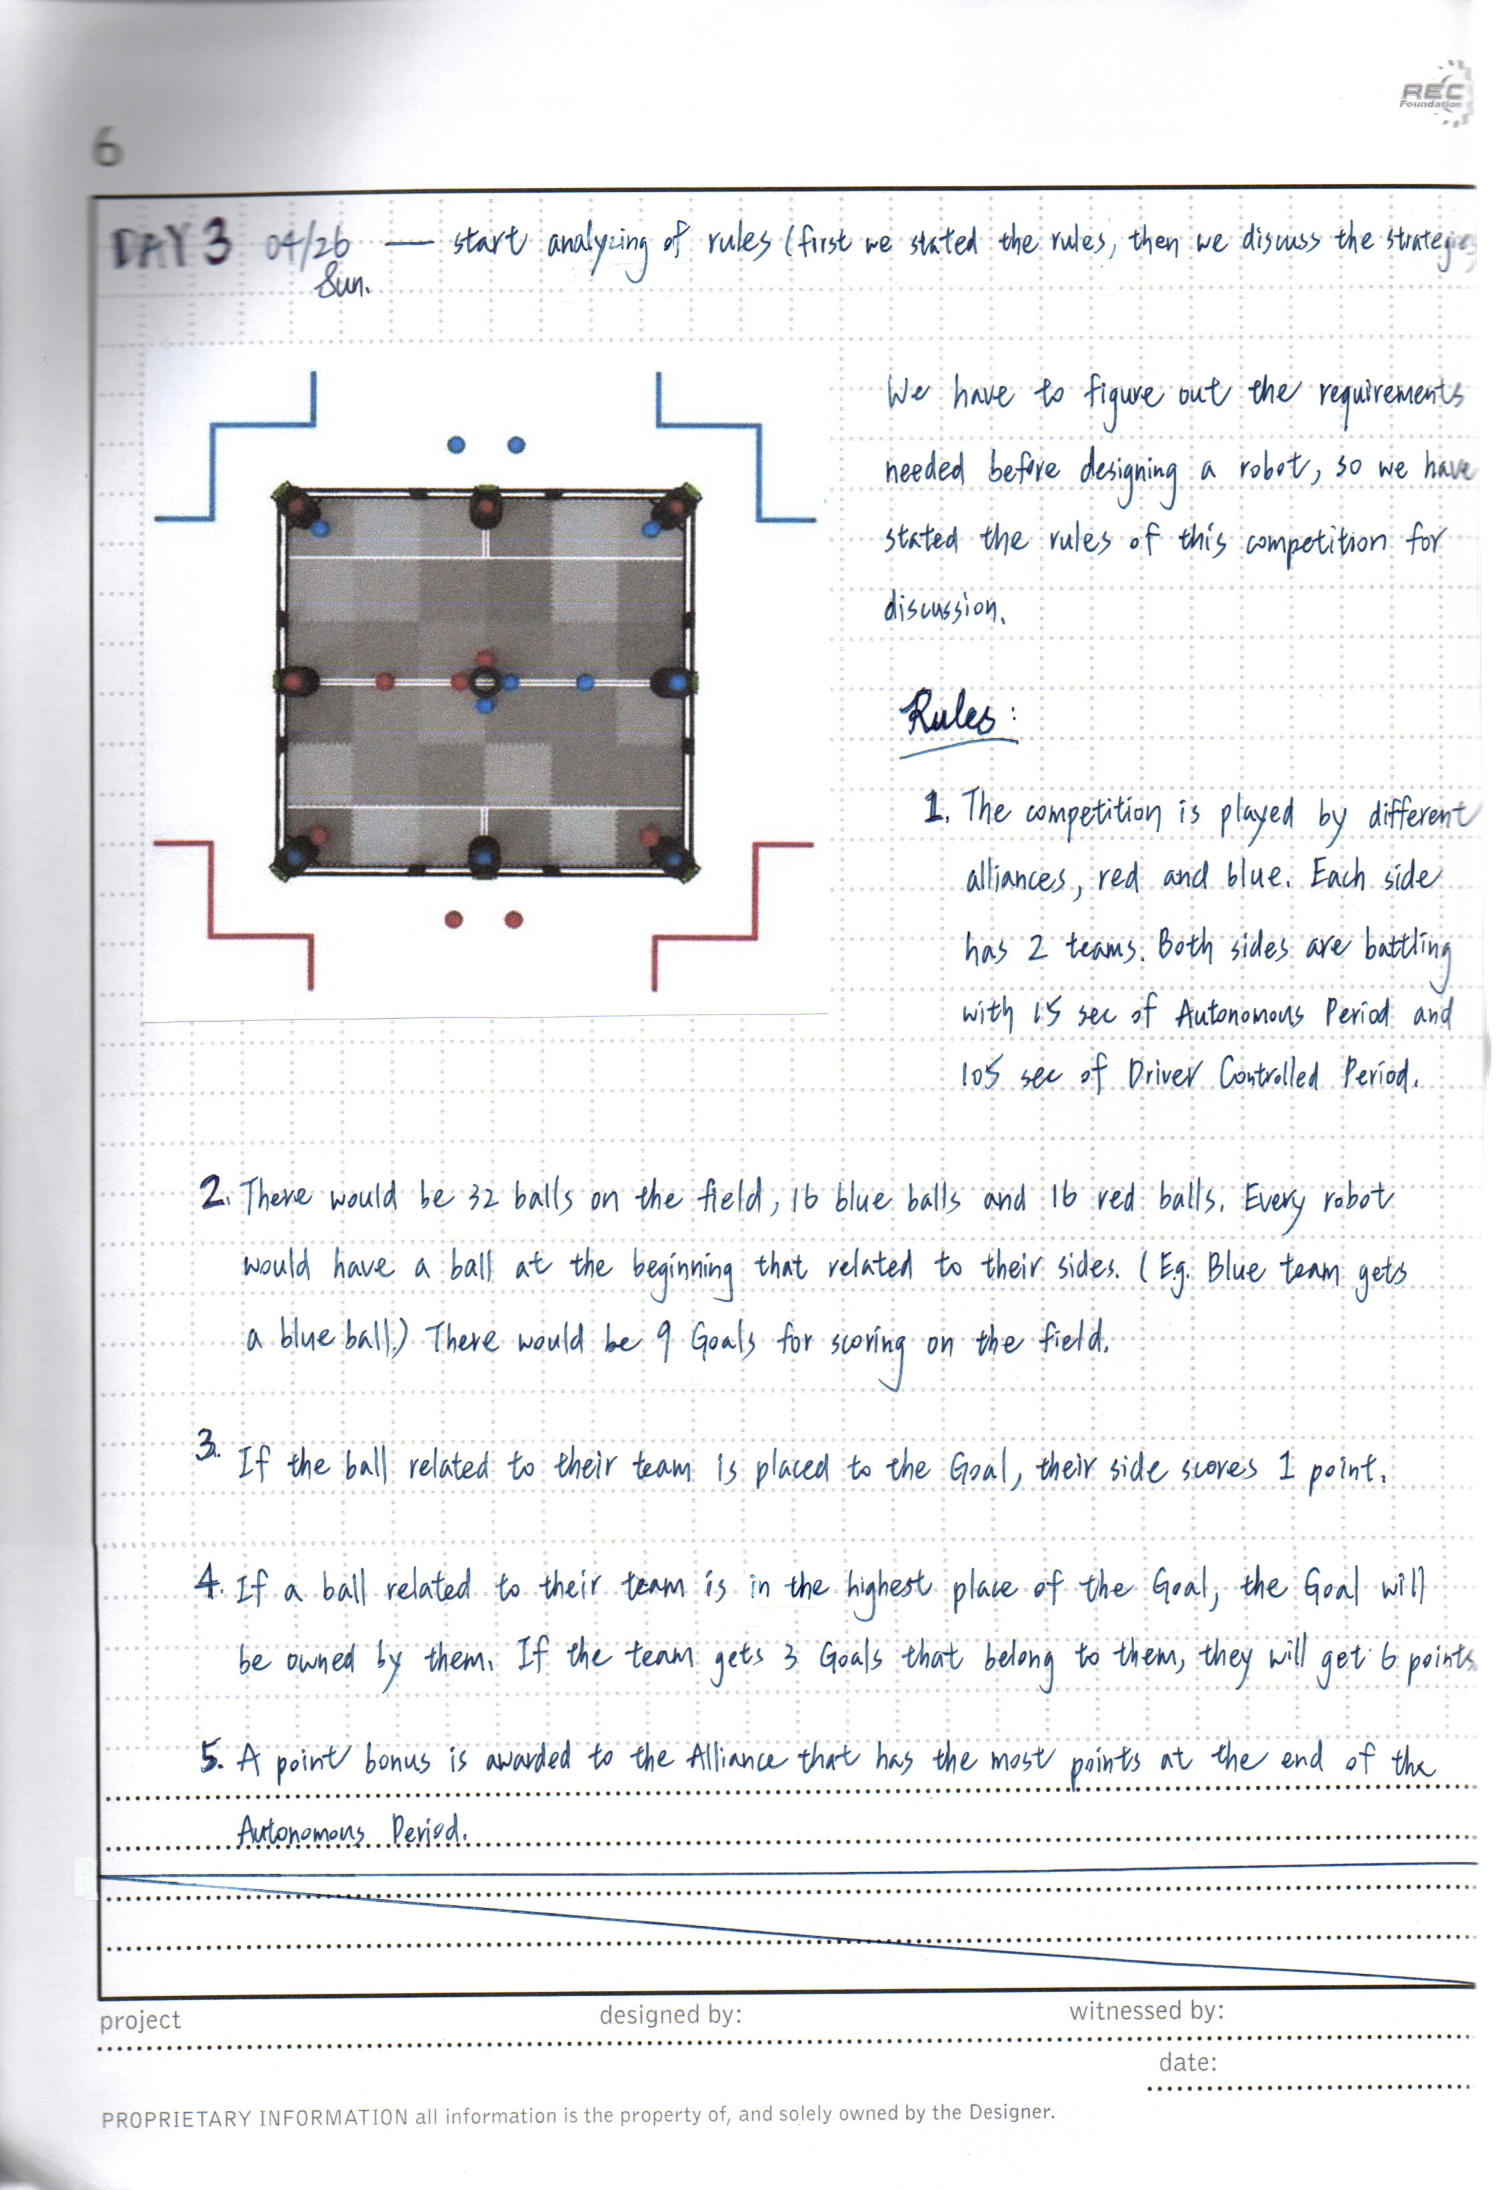 REC
Foundation
6
DAY 3 04/26 — start analyzing of rules (first we stated the rules, then we discuss the strategies
Sun.
We have to figure out the requirements
needed before designing a robot, so we have
stated the rules of this competition for
discussion.
Rules:
1. The competition is played by different
alliances, red and blue. Each side
has 2 teams. Both sides are battling
with 15 sec of Autonomous Period and
105 sec of Driver Controlled Period.
2. There would be 32 balls on the field, 16 blue balls and 16 red balls. Every robot
would have a ball at the beginning that related to their sides. (Eg. Blue team gets
a blue ball.) There would be 9 Goals for scoring on the field.
3. If the ball related to their team is placed to the Goal, their side scores 1 point.
4. If a ball related to their team is in the highest place of the Goal, the Goal will
be owned by them. If the team gets 3 Goals that belong to them, they will get 6 points
5. A point bonus is awarded to the Alliance that has the most points at the end of the
Autonomous Period.
project
designed by:
witnessed by:
date:
PROPRIETARY INFORMATION all information is the property of, and solely owned by the Designer.